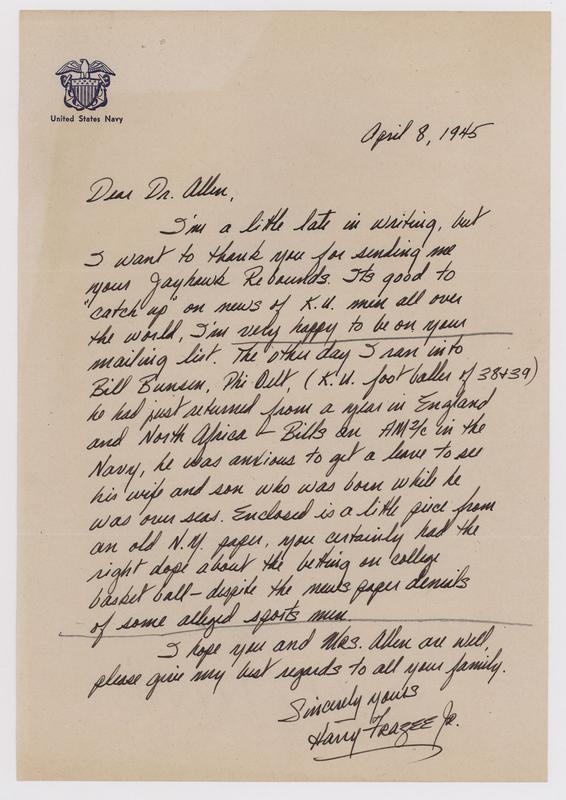 United States Navy
April 8, 1945
Dear Dr. Allen,
I'm a little late in writing, but
I want to thank you for sending me
your Jayhawk Rebounds. Its good to
"catch up" on news of K.U. men all over
the world, I'm very happy to be on your
mailing list. The other day I ran into
Bill Bunsen, Phi Delt, (K.U. foot baller of 38+39)
he had just returned from a year in England
and North Africa – Bills an AM2/c in the
Navy, he was anxious to get a leave to see
his wife and son who was born while he
was over seas. Enclosed is a little piece from
an old N.Y. paper, you certainly had the
right dope about the betting on college
basket ball – despite the news paper denials
of some alleged sports men.
I hope you and Mrs. Allen are well,
please give my best regards to all your family.
Sincerely yours
Harry Frazee Jr.